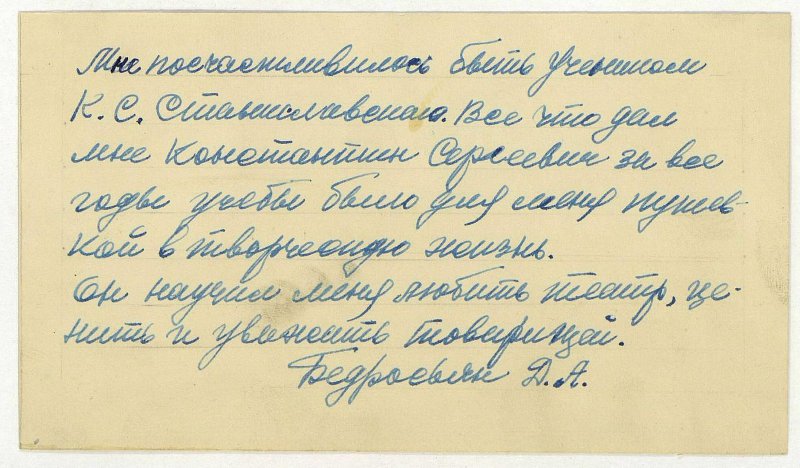 Мне посчастливилось быть учеником
К. С. Станиславского. Все что дал
мне Константин Сергеевич за все
годы учебы было для меня путев-
кой в творческую жизнь.
Он научил меня любить театр, це-
нить и уважать товарищей.
Бедросьян Д. А.